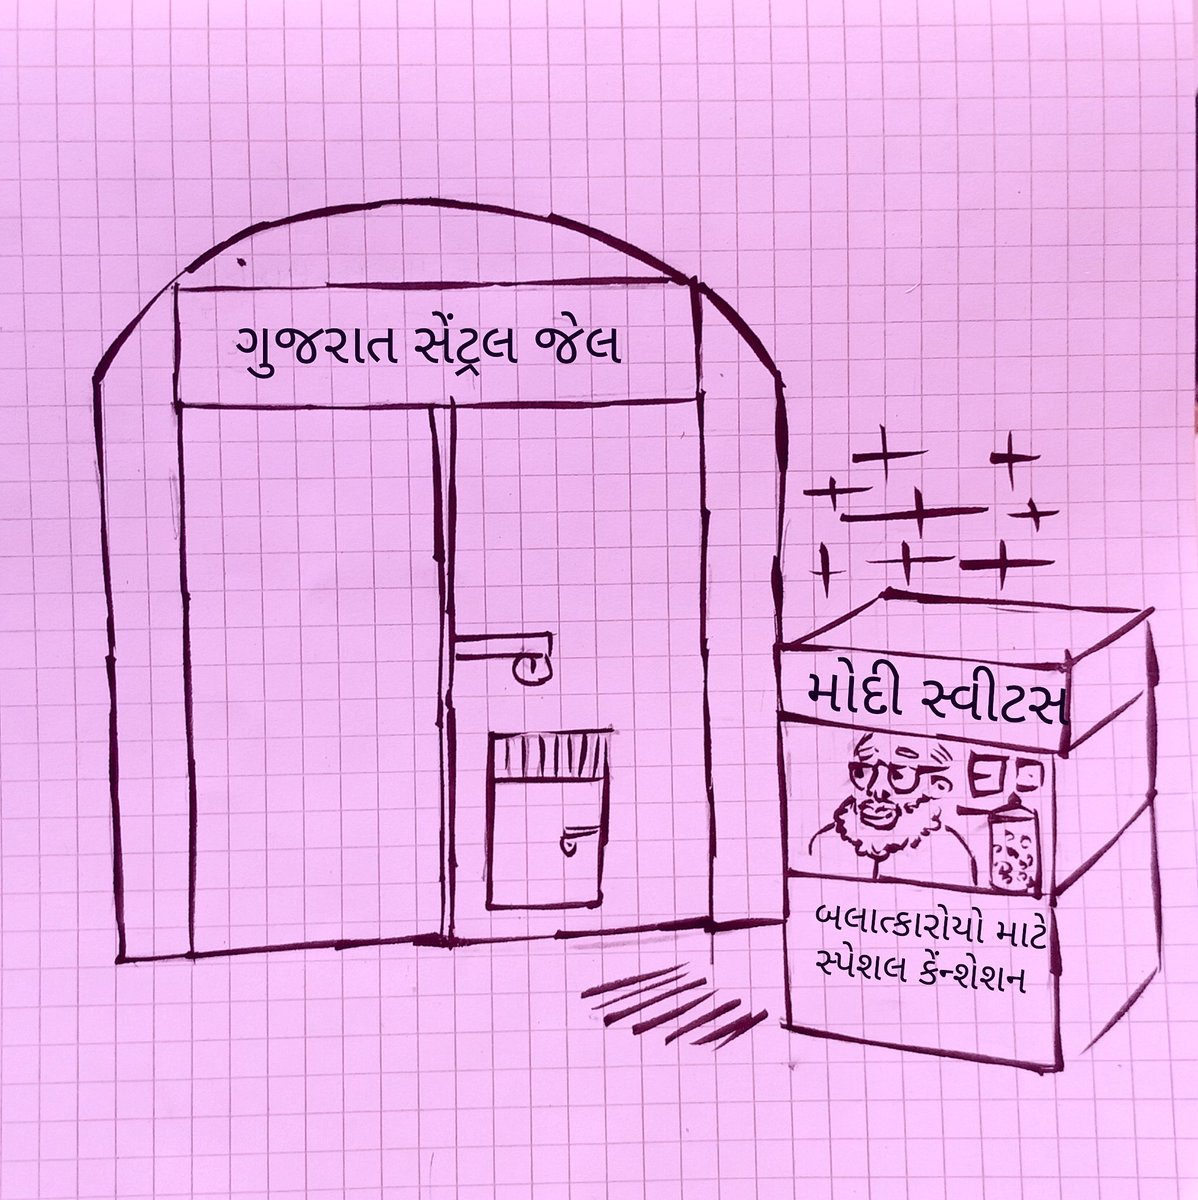 ગુજરાત સેંટ્રલ જેલ
મોદી સ્વીટસ
બલાત્કારોયો માટે
સ્પેશલ કેંન્શેશન